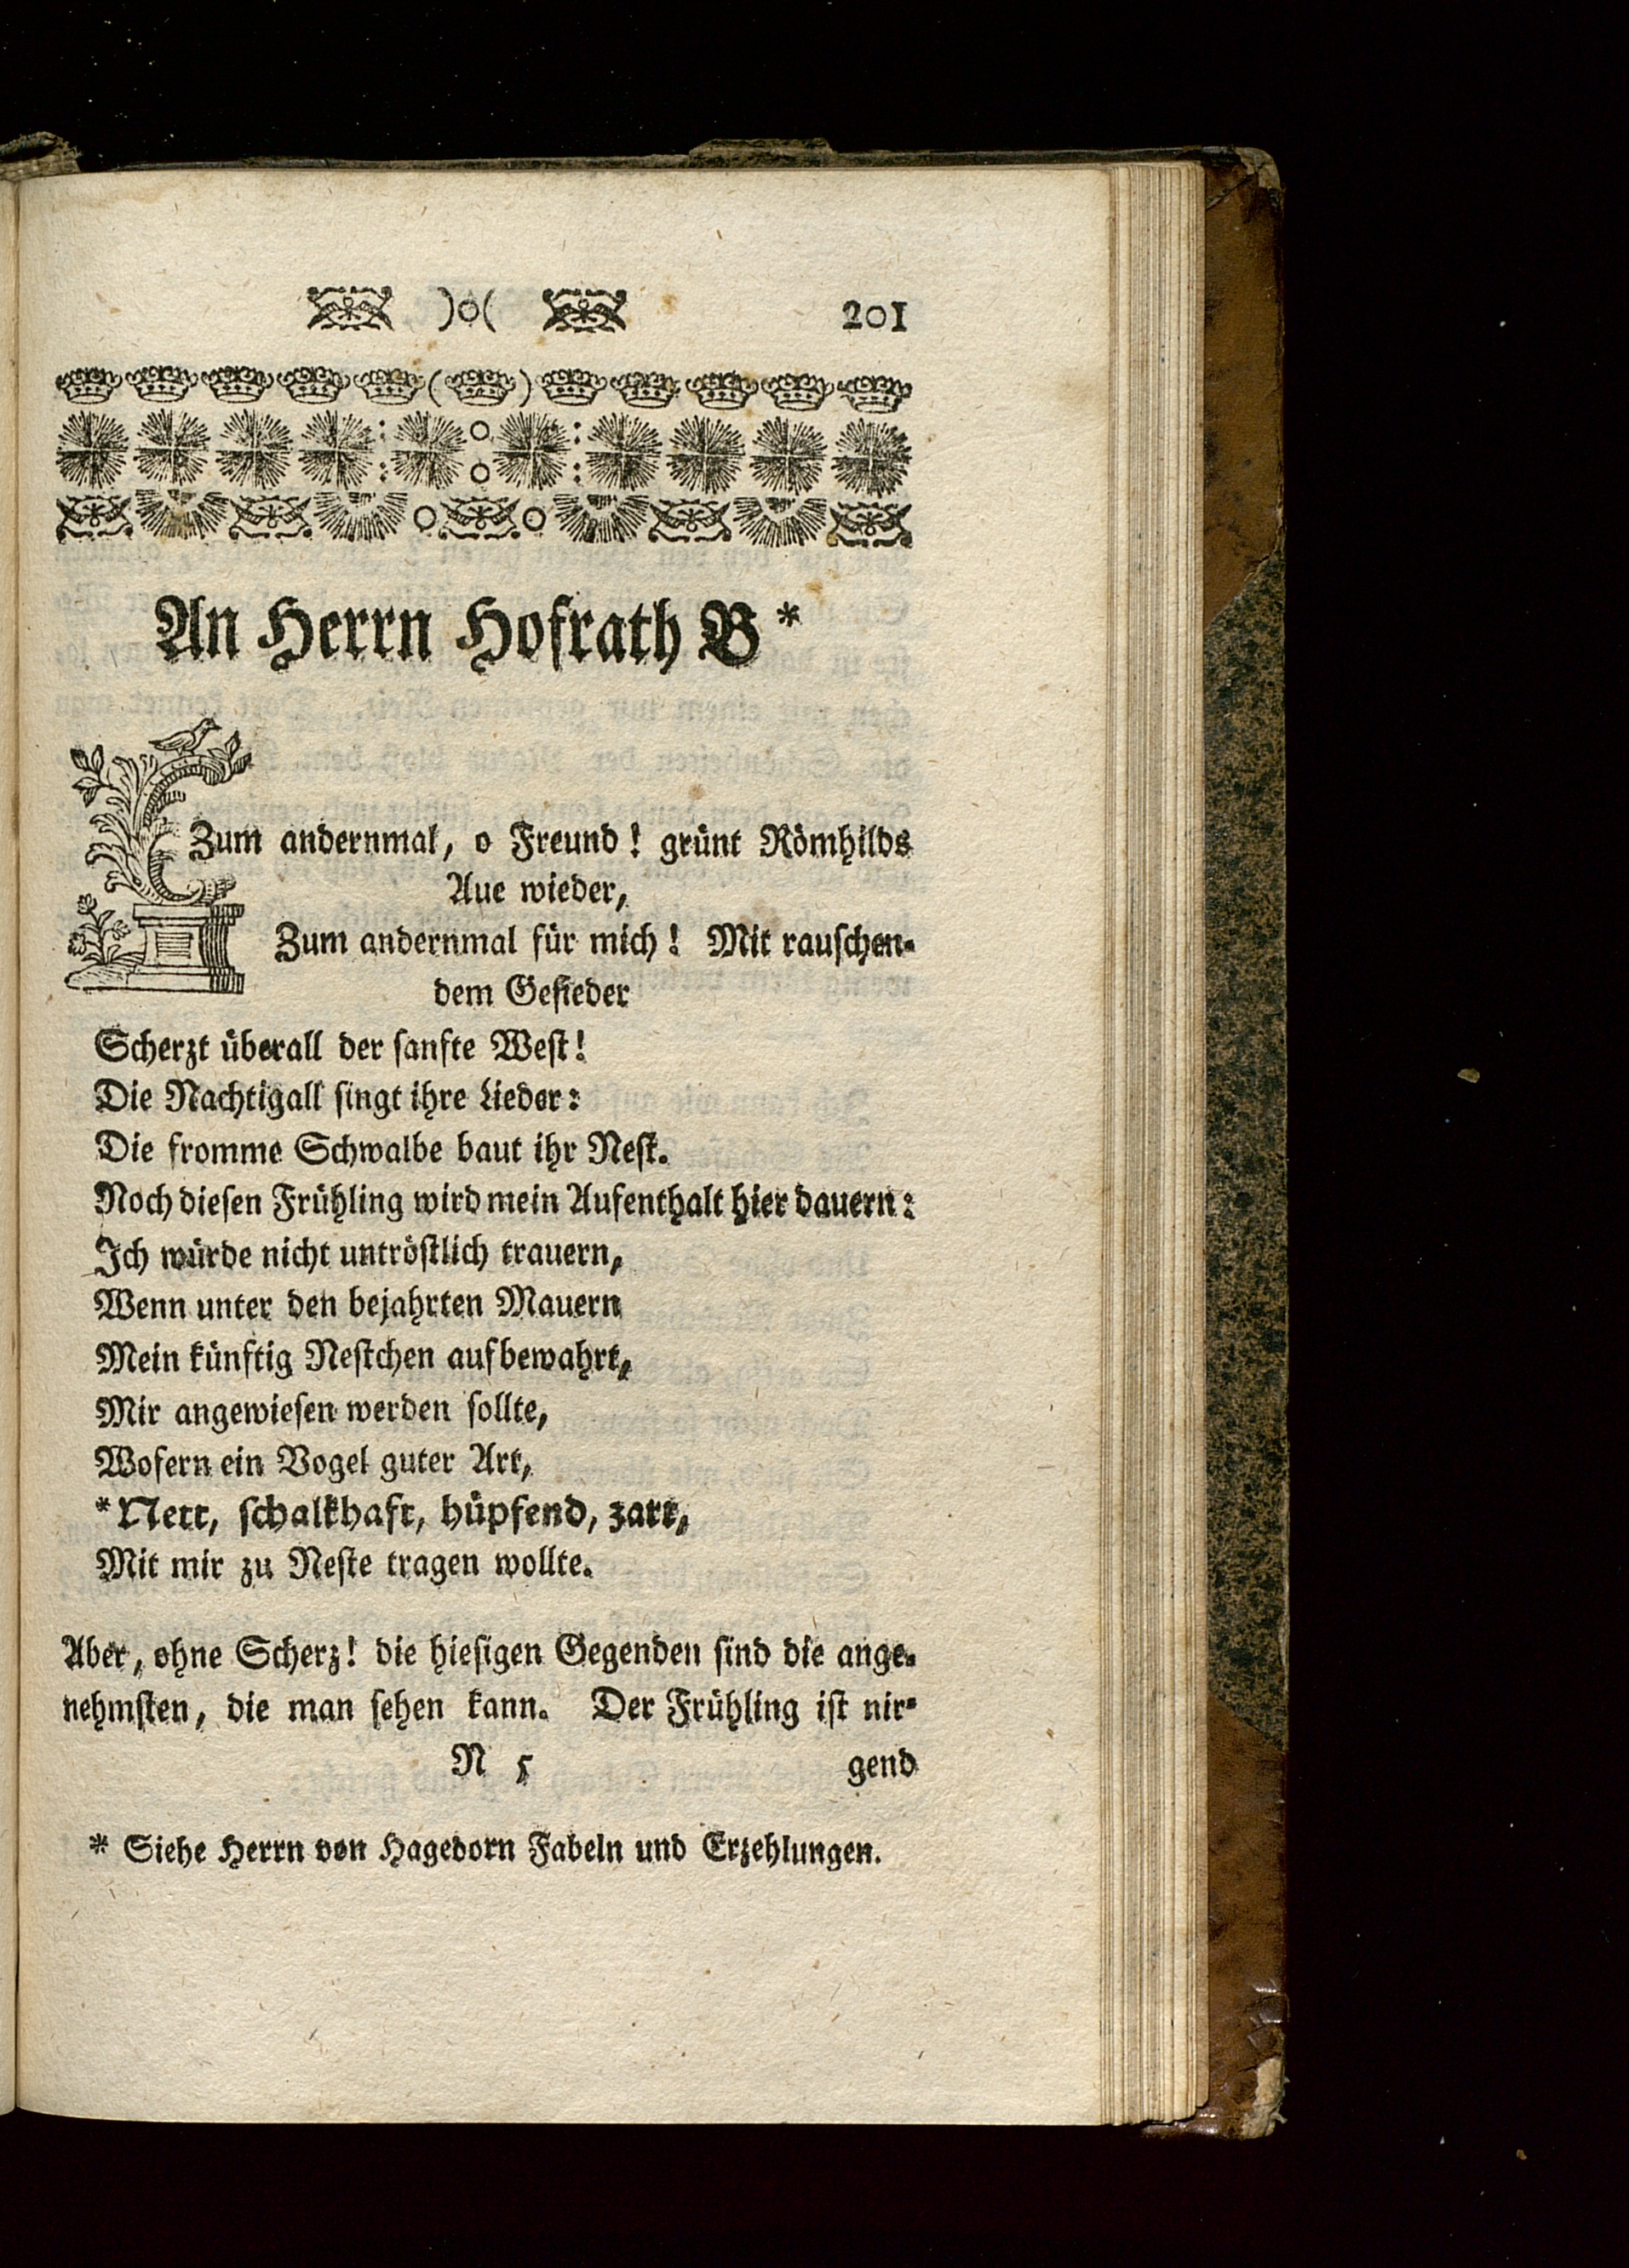 )o( 201
An Herrn Hofrath B*
Zum andernmal, o Freund! grünt Römhilds
Aue wieder,
Zum andernmal für mich! Mit rauschen-
dem Gefieder
Scherzt überall der sanfte West!
Die Nachtigall singt ihre Lieder:
Die fromme Schwalbe baut ihr Nest.
Noch diesen Frühling wird mein Aufenthalt hier dauern:
Ich würde nicht untröstlich trauern,
Wenn unter den bejahrten Mauern
Mein künftig Nestchen aufbewahrt,
Mir angewiesen werden sollte,
Wofern ein Vogel guter Art,
*Nett, schalkhaft, hüpfend, zart,
Mit mir zu Neste tragen wollte.
Aber, ohne Scherz! die hiesigen Gegenden sind die ange-
nehmsten, die man sehen kann. Der Frühling ist nir-
N 5 gend
* Siehe Herrn von Hagedorn Fabeln und Erzehlungen.